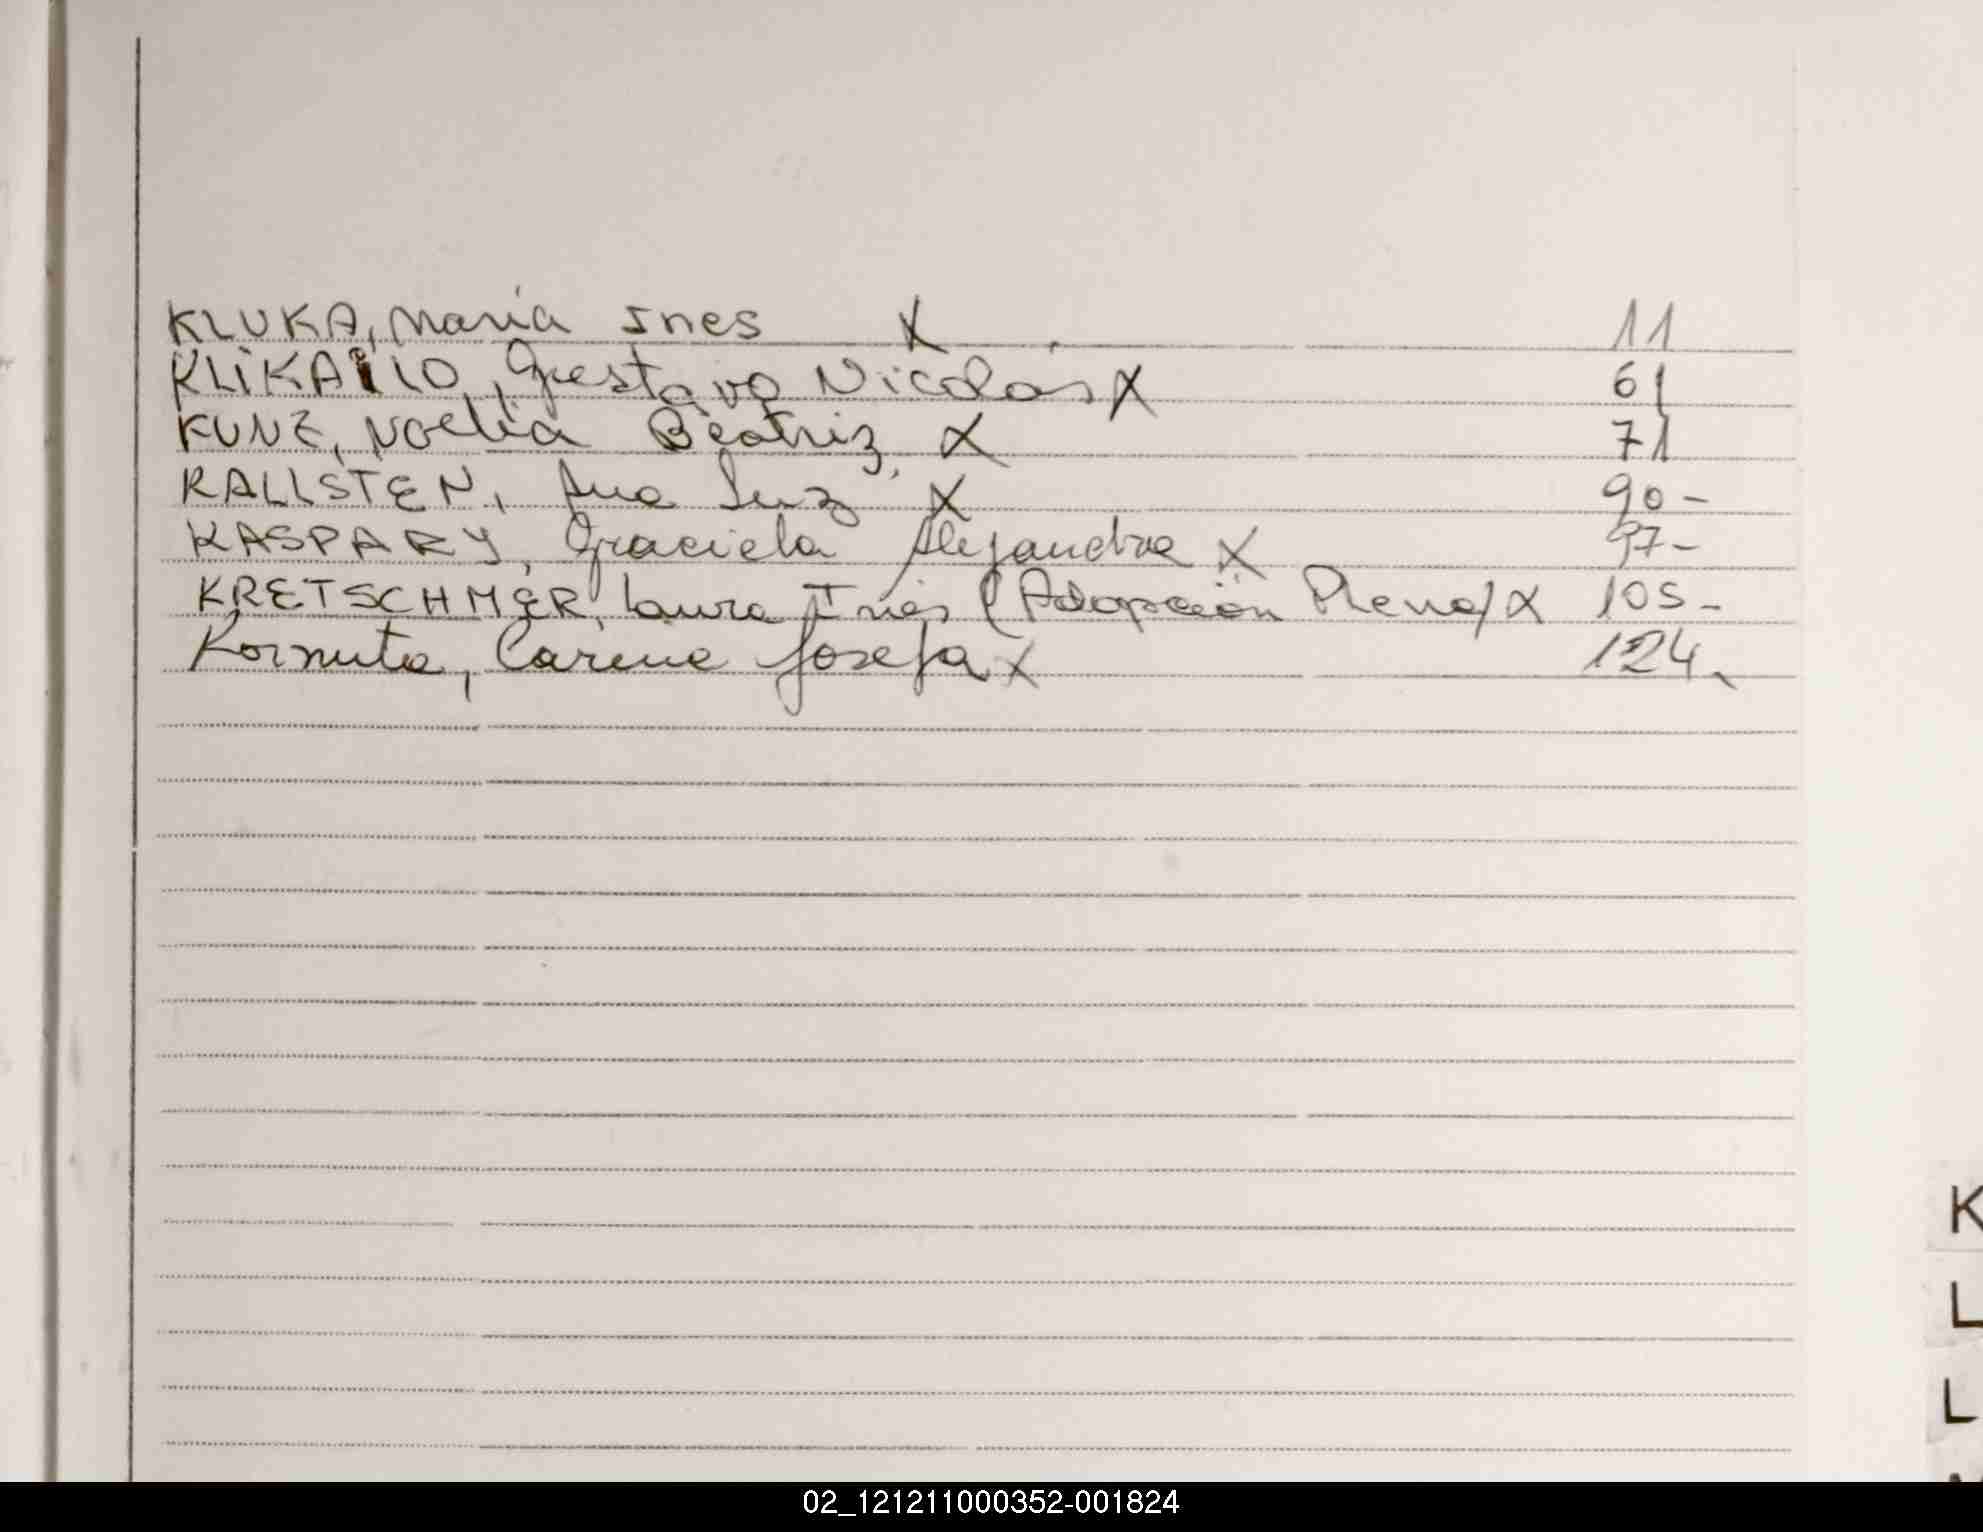 KLUKA, Maria Ines X 11
KLIKAILO, Gustavo Nicolás X 61
KUNZ, Noelia Beatriz X 71
KALLSTEN, Ana Luz X 90-
KASPARY, Graciela Alejandra X 97-
KRETSCHMER, Laura Inés (Adopción Plena) X 105-
Kornuta, Carina Josefa X 124-
K
L
L
02_121211000352-001824